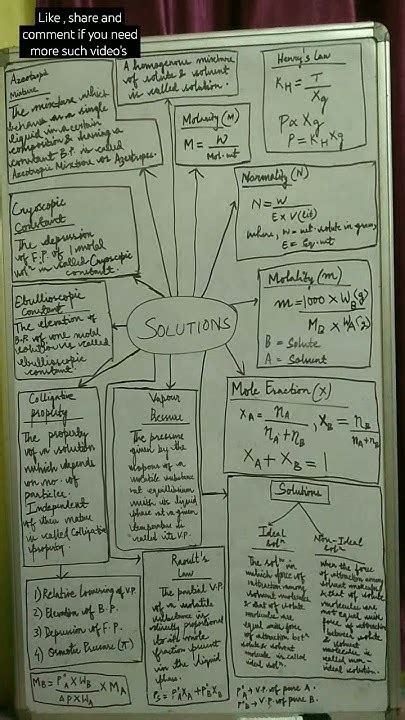 Like , share and
comment if you need
more such video's
Azeotropic
Mixture
The mixture which
behaves as a single
liquid in a certain
composition & having a
constant B.P. is called
Azeotropic Mixture or Azeotropes.
A homogenous mixture
of solute & solvent
is called solution.
Molarity (M)
M = W
Mol. wt
Henry's Law
K_H = T
Xg
P∝Xg
P = K_H Xg
Normality (N)
N = W
E × V(lit)
where, W = wt. solute in gram,
E = Eq. wt
Cryoscopic
Constant
The depression
of F.P. of 1 molal
sol^n is called Cryoscopic
constant.
Ebullioscopic
Constant
The elevation of
B.P. of one molal
solution is called
ebullioscopic
constant.
SOLUTIONS
Molality (m)
m = 1000 × W_B(g)
M_B × W_A(g)
B = Solute
A = Solvent
Mole Fraction (X)
X_A = n_A
n_A + n_B
, X_B = n_B
n_A + n_B
X_A + X_B = 1
Colligative
property
The property
of a solution
which depends
on no. of
particles
Independent
of their nature
is called Colligative
property.
Vapour
Pressure
The pressure
given by the
vapours of a
volatile substance
at equilibrium
with its liquid
phase at a given
temperature is
called its V.P.
Solutions
Ideal
sol^n
The sol^n in
which force of
attraction among
solvent molecules
& that of solute
molecules are
equal with force
of attraction bet^n
solute & solvent
molecule is called
ideal sol^n.
Non-Ideal
sol^n
When the force
of attraction among
solvent molecules
& that of solute
molecules are
not equal with
force of attraction
between solute &
solvent
molecule is
called non-
ideal solution.
P°_A = V.P. of pure A.
P°_B = V.P. of pure B.
1) Relative Lowering of V.P.
2) Elevation of B.P.
3) Depression of F.P.
4) Osmotic Pressure (π)
M_B = P°_A × W_B × M_A
ΔP × W_A
Raoult's
Law
The partial V.P.
of a volatile
substance is
directly proportional
to its mole
fraction present
in the liquid
phase.
P_S = P°_A X_A + P°_B X_B